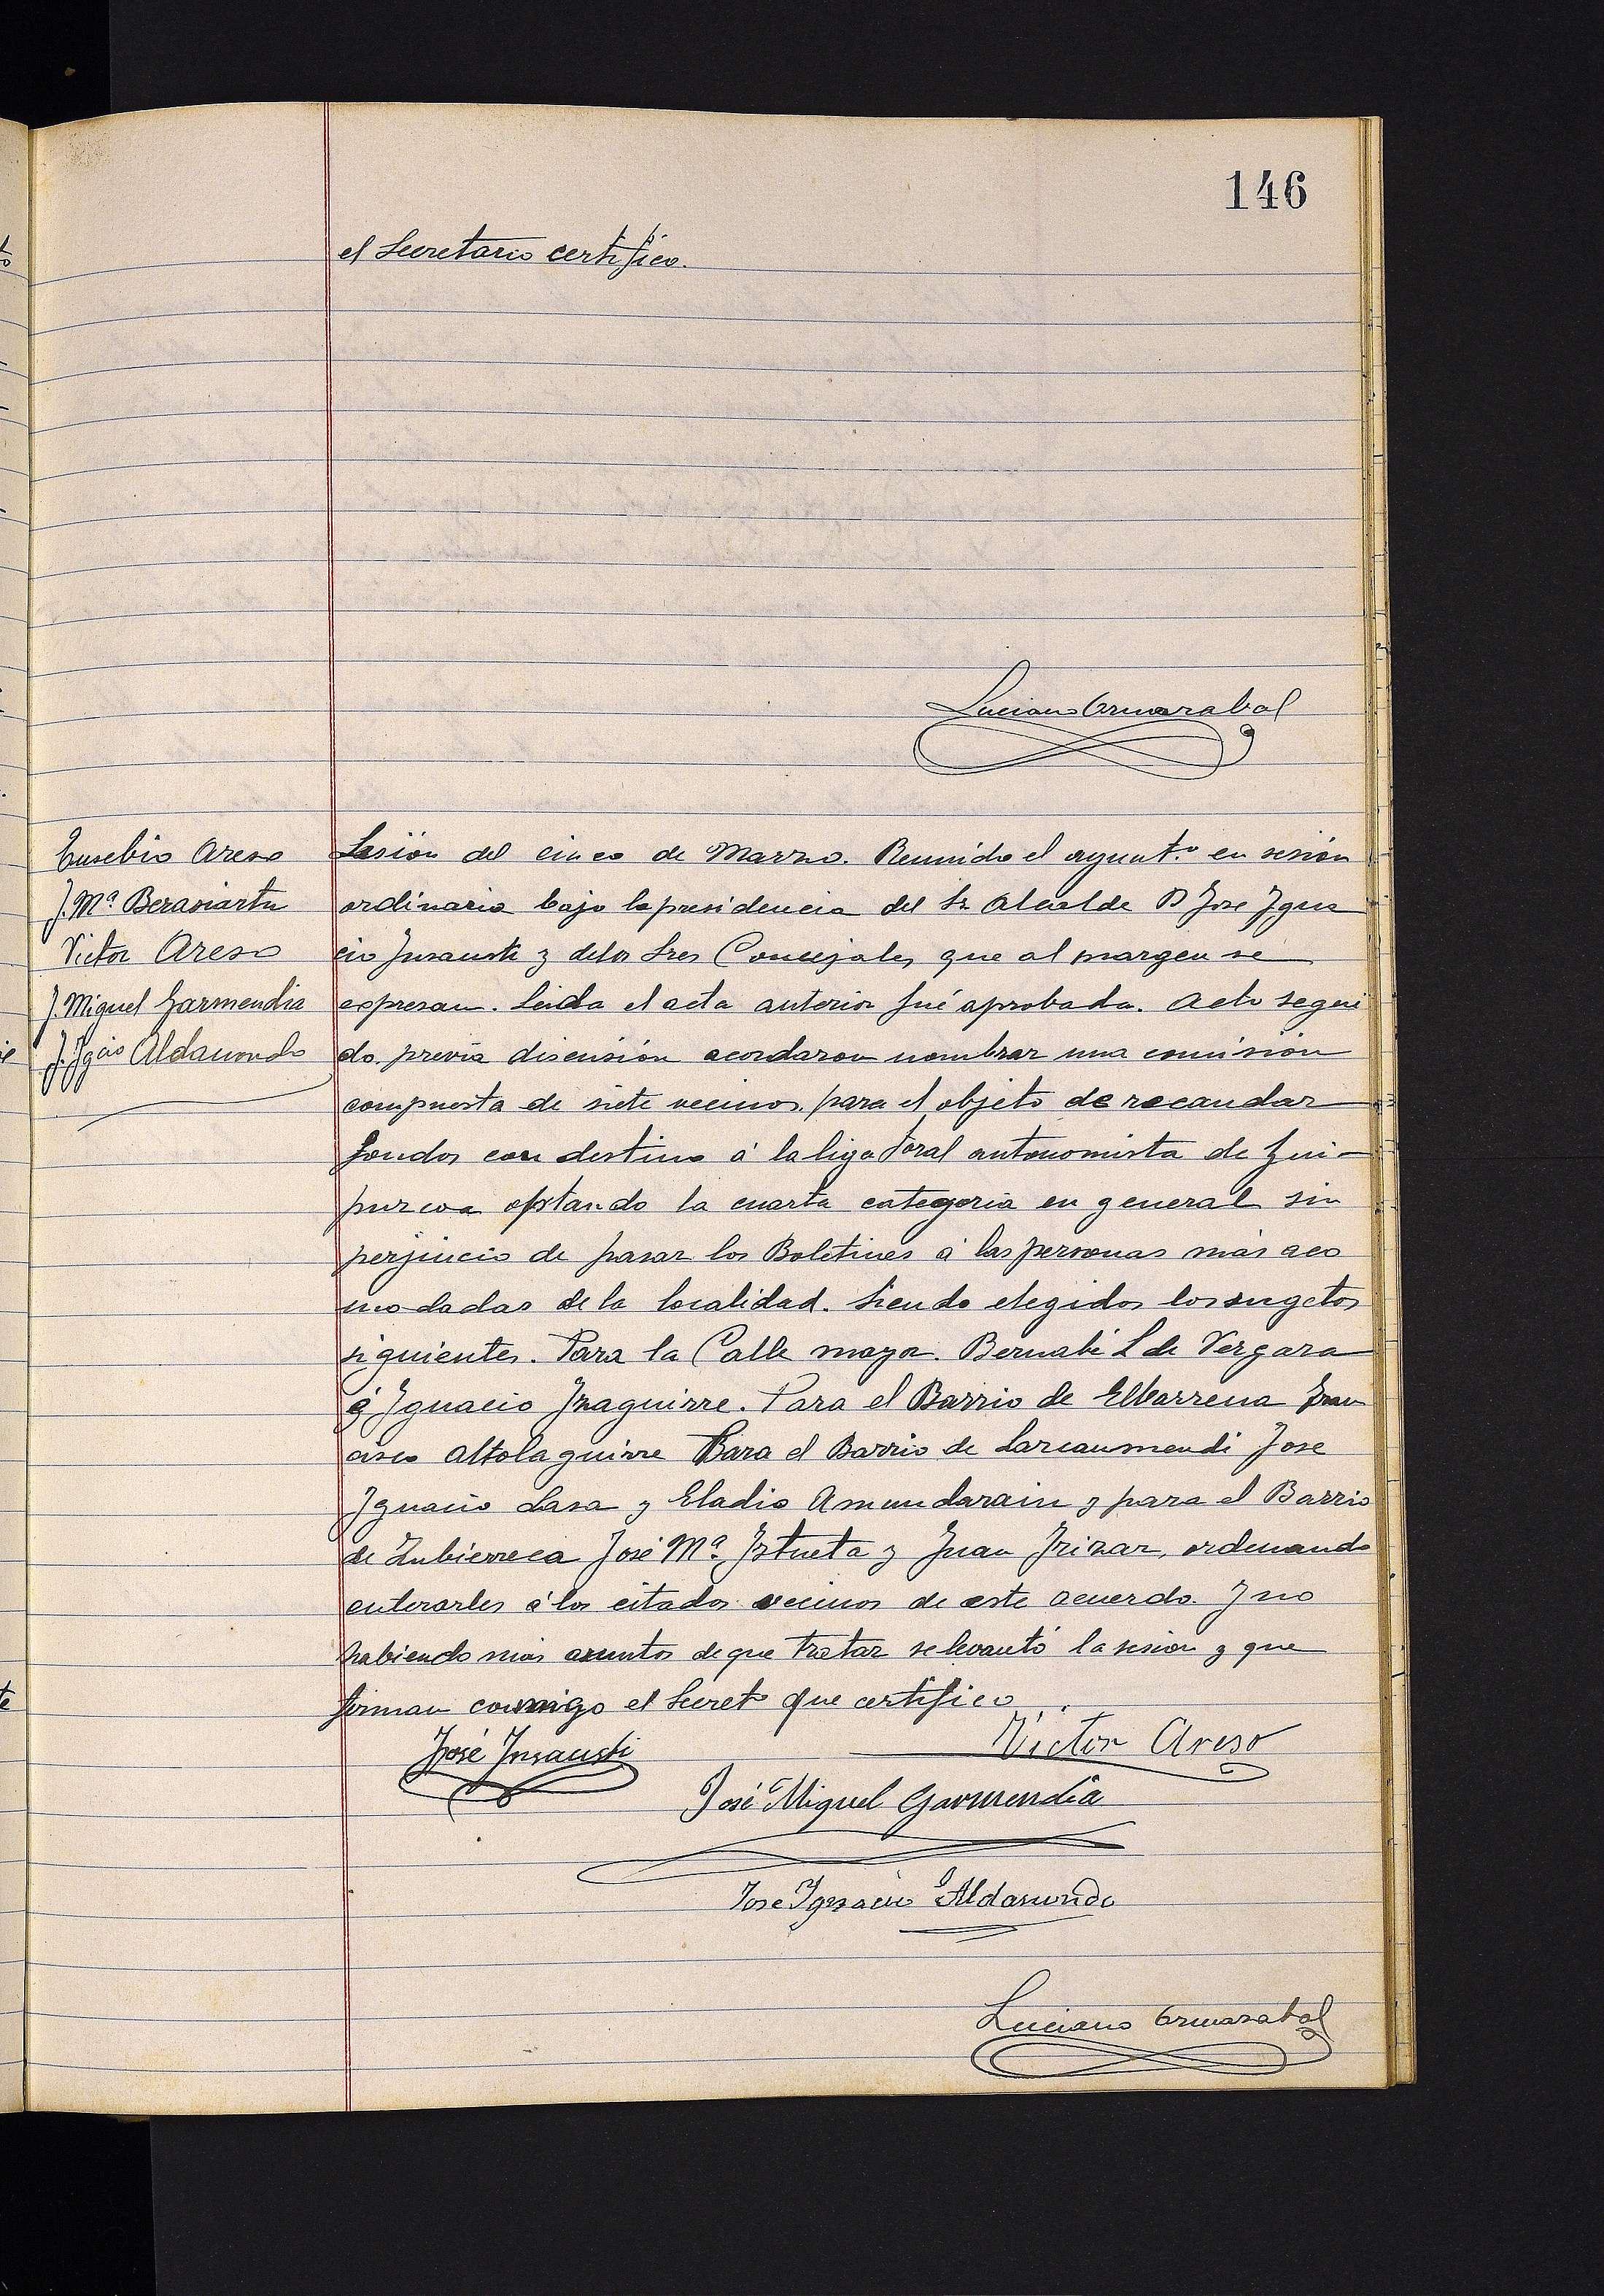 146
el Secretario certifico.
Luciano Ormazabal
Eusebio Areso
J. Mª Berasiartu
Victor Areso
J. Miguel Garmendia
J. Igcio Aldasoro
Sesión del cinco de Marzo. Reunido el ayunt.º en sesión
ordinaria bajo la presidencia del Sr Alcalde D Jose Igna
cio Insausti y de los Sres Concejales que al margen se
expresan. Leida el acta anterior fué aprobada. Acto segui
do previa discusión acordaron nombrar una comisión
compuesta de siete vecinos para el objeto de recaudar
fondos con destino á la liga Foral autonomista de Gui-
puzcoa optando la cuarta categoria en general sin
perjuicio de pasar los Boletines á las personas más aco
modadas de la localidad. Siendo elegidos los sugetos
siguientes. Para la Calle mayor. Bernabé L de Vergara
é Ignacio Izaguirre. Para el Barrio de Elbarrena Fran
cisco Altolaguirre Para el Barrio de Larcaumendi Jose
Ignacio Lasa y Eladio Amundarain y para el Barrio
de Zubierreca José Mª Iztueta y Juan Irizar, ordenando
enterarles á los citados vecinos de este acuerdo. Y no
habiendo más asuntos de que tratar se levantó la sesion y que
firman conmigo el Secretº que certifico
José Insausti
Victor Areso
José Miguel Garmendia
Jose Ignacio
Luciano Ormazabal